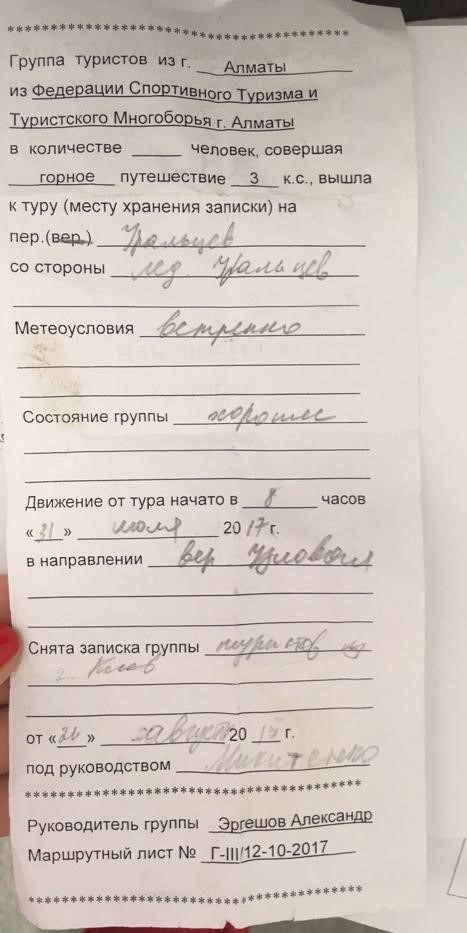 ********************************************
Группа туристов из г. Алматы
из Федерации Спортивного Туризма и
Туристского Многоборья г. Алматы
в количестве ____ человек, совершая
горное путешествие 3 к.с., вышла
к туру (месту хранения записки) на
пер.(вер.) Уральцев
со стороны лед. Уральцев
Метеоусловия ветренно
Состояние группы хорошее
Движение от тура начато в 8 часов
«31» июля 2017 г.
в направлении вер. Узловая
Снята записка группы туристов из
г. Киев
от «» августа 2015 г.
под руководством Микитенко
********************************************
Руководитель группы Эргешов Александр
Маршрутный лист № Г-III/12-10-2017
********************************************